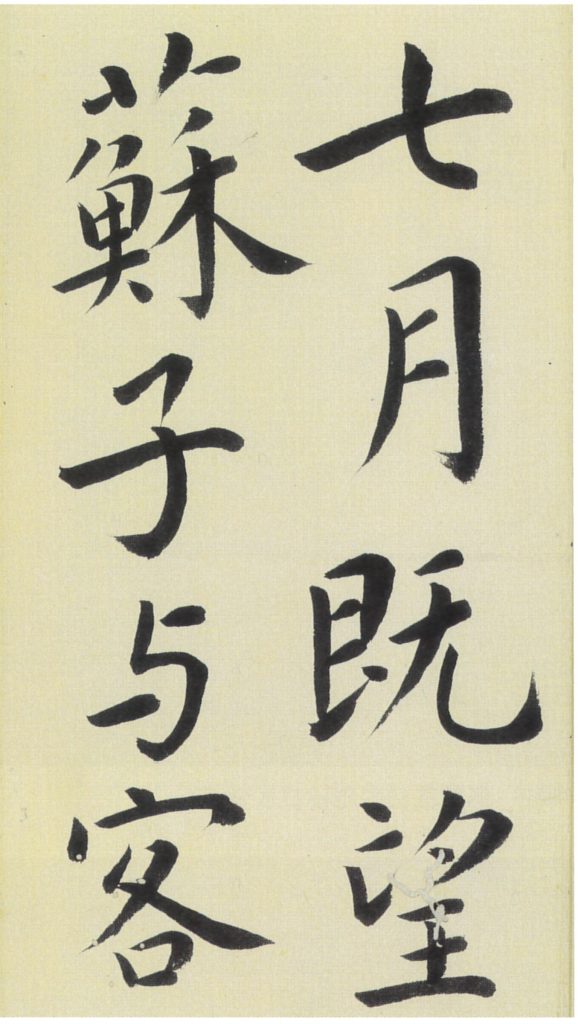 七月既望
蘇子与客